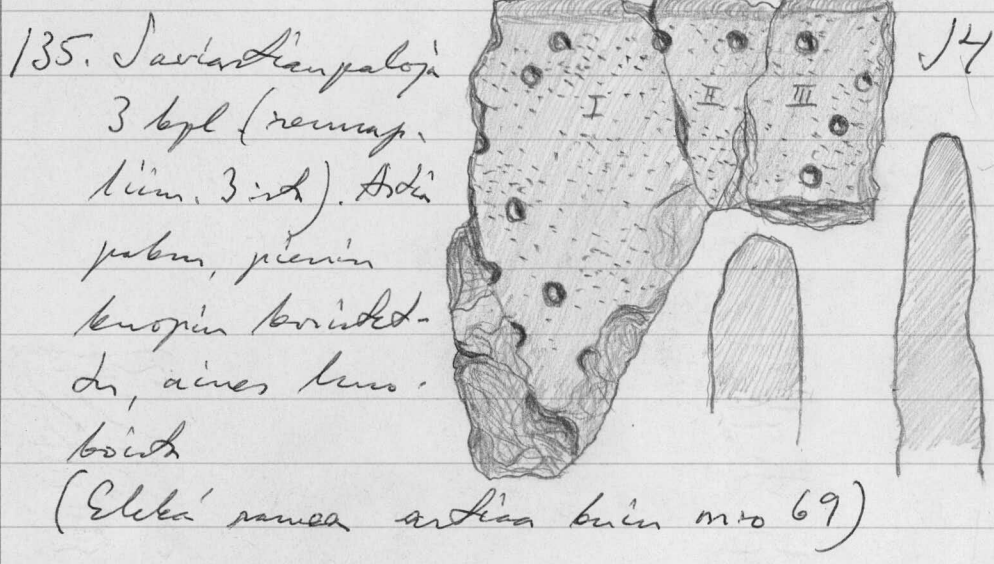 135. Saviastianpaloja
3 kpl (reunap.
liim. 3:sta). Astia
paksu, pienin
kuopin koristet-
tu, aines huo-
koista
(Ehkä samaa astiaa kuin n:ro 69)
I II III
J4